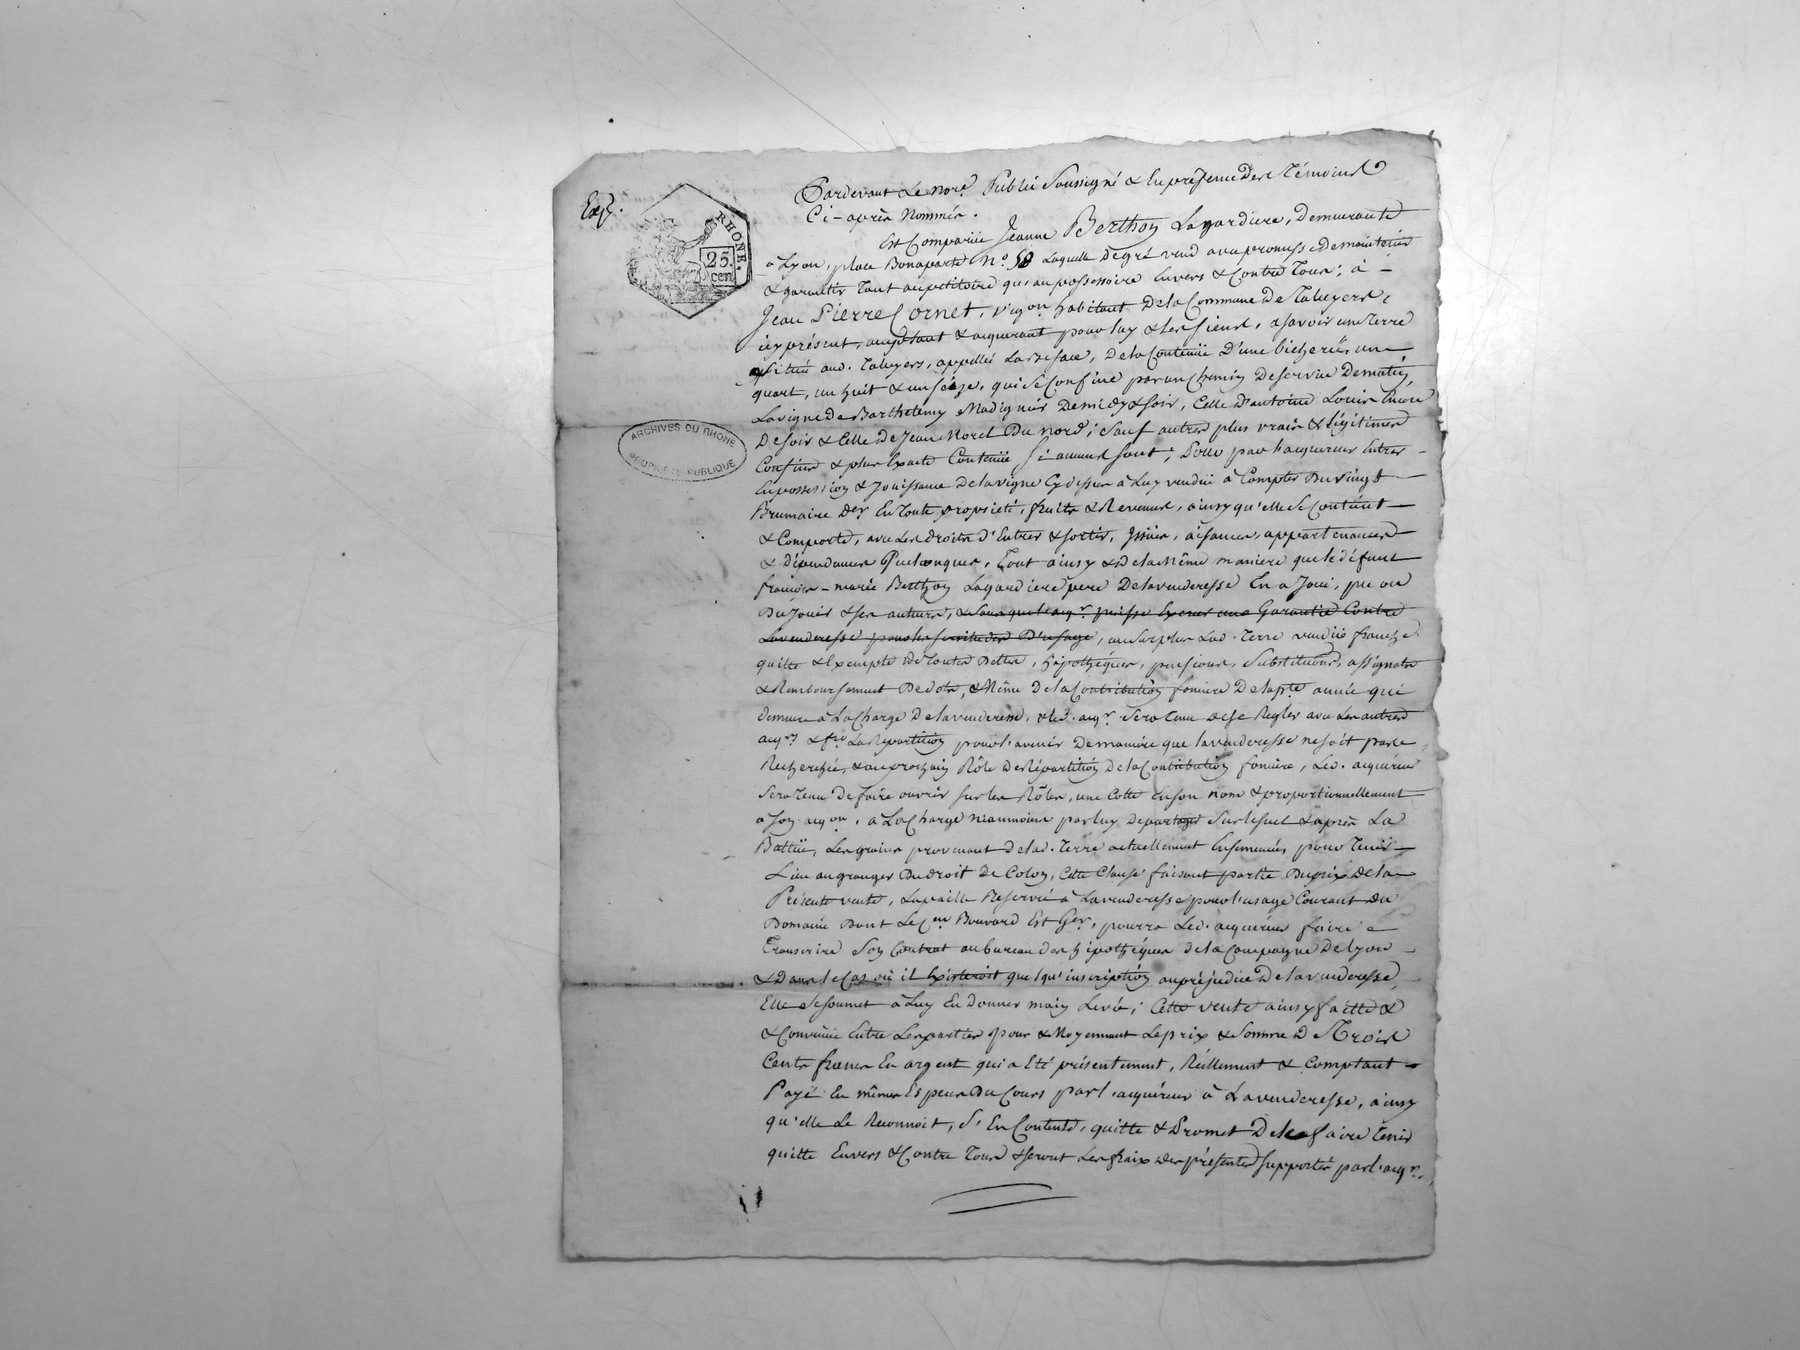 Expé.
RHONE.
25.
cen
Pardevant Le Nore. Public Soussigné & En présence Des Témoins
Ci-après Nommés.
Est Comparüe Jeanne Berthoy Lagardiere, Demeurante
à Lyon, place Bonaparte N.o 58 Laquelle dégré vend avec promesse de maintenir
& garantir Tout au petitoire qu'au possessoire Envers & Contre Tous; à -
Jean Pierre Cornet, vigon habitant De la Commune De Taluyers,
icy présent, acceptant & acquerant pour luy & Les siens, asavoir une Terre
située aud. Taluyers, appellée La De la Contenüe D'une bicherée, un
quart, un huit & un séize, qui se Confine par un Chemin Deservie De matin,
La vigne De Barthelemy Madignier De midy & soir, Celle D'antoine Louis
De soir & Celle De Jean Morel Du nord; Sauf autres plus vrais & légitimes
ARCHIVES DU RHONE
PROPRIÉTÉ PUBLIQUE
Confins & plus Exacte Contenüe si aucuns sont; Pour par L'acquereur Entrer
En possession & Jouissance De la vigne Cy dessus à Luy vendüe à Compter Du vingt
Brumaire Der En Toute propriété, fruits & Revenus, ainsy qu'elle se Contient
& Comporte, avec Les droits d'Entrer & sortir, Issües, aisances, appartenances
& dépendances Quelconques, Tout ainsy & De la Même maniere que le défunt
françois-marie Berthoy Lagardiere père De la venderesse En a Joui, pu ou
Du Jouir & ses auteurs, & sans que l'aqr. puisse Exercer une Garantie Contre
La venderesse pour les servitudes D'usage, au surplus Lad. Terre vendüe franche
quitte & Exempte De Toutes Dettes, hipothéques, pensions, Substitutions, assignats
& Remboursement De dots, & Même De la Contribution fonciere De la pte année qui
demeure à La Charge De la venderesse, & led. aqr. Sera Tenu De se Regler avec Les autres
aqrs & La Répartition pour l'avenir De maniére que la venderesse ne soit pas
Recherchée, & au prochain Rôle De Répartition De la Contribution fonciere, Led. acquéreur
Sera Tenu De faire ouvrir sur Les Rôles, une Cotte En son nom & proportionnellement
à Soy aqon, à La Charge néanmoins par luy De partager Sur le sol & après La
Battüe, Les grains provenant De lad. Terre actuellement Ensemencée, pour Tenir
Lieu au granger Du droit De Coloy, Cette Clause faisant partie Du prix De la
Présente vente, La paille Reservée à La venderesse pour l'usage Courant du
Domaine Dont Le Cen Bouvard Est Ger, pourra Led. acquéreur faire
Transcrire Soy Contrat au bureau des hipothéques De la Campagne De Lyon
& Dans le Cas où il Existeroit quelqu'inscription au préjudice De la venderesse,
Elle se soumet à Luy En Donner main Levée; Cette vente ainsy faitte &
& Convenüe Entre Les parties pour & Moyennant Le prix & Somme De Trois
Cents francs En argent qui a Eté présentement, Réellement & Comptant
Payé En mêmes Especes Du Cours par l'acquéreur à La venderesse, ainsy
qu'elle Le Reconnoit, s'En Contente, quitte & Promet De le faire Tenir
quitte Envers & Contre Tous & seront Les fraix des présentes supportés par l'aqr.